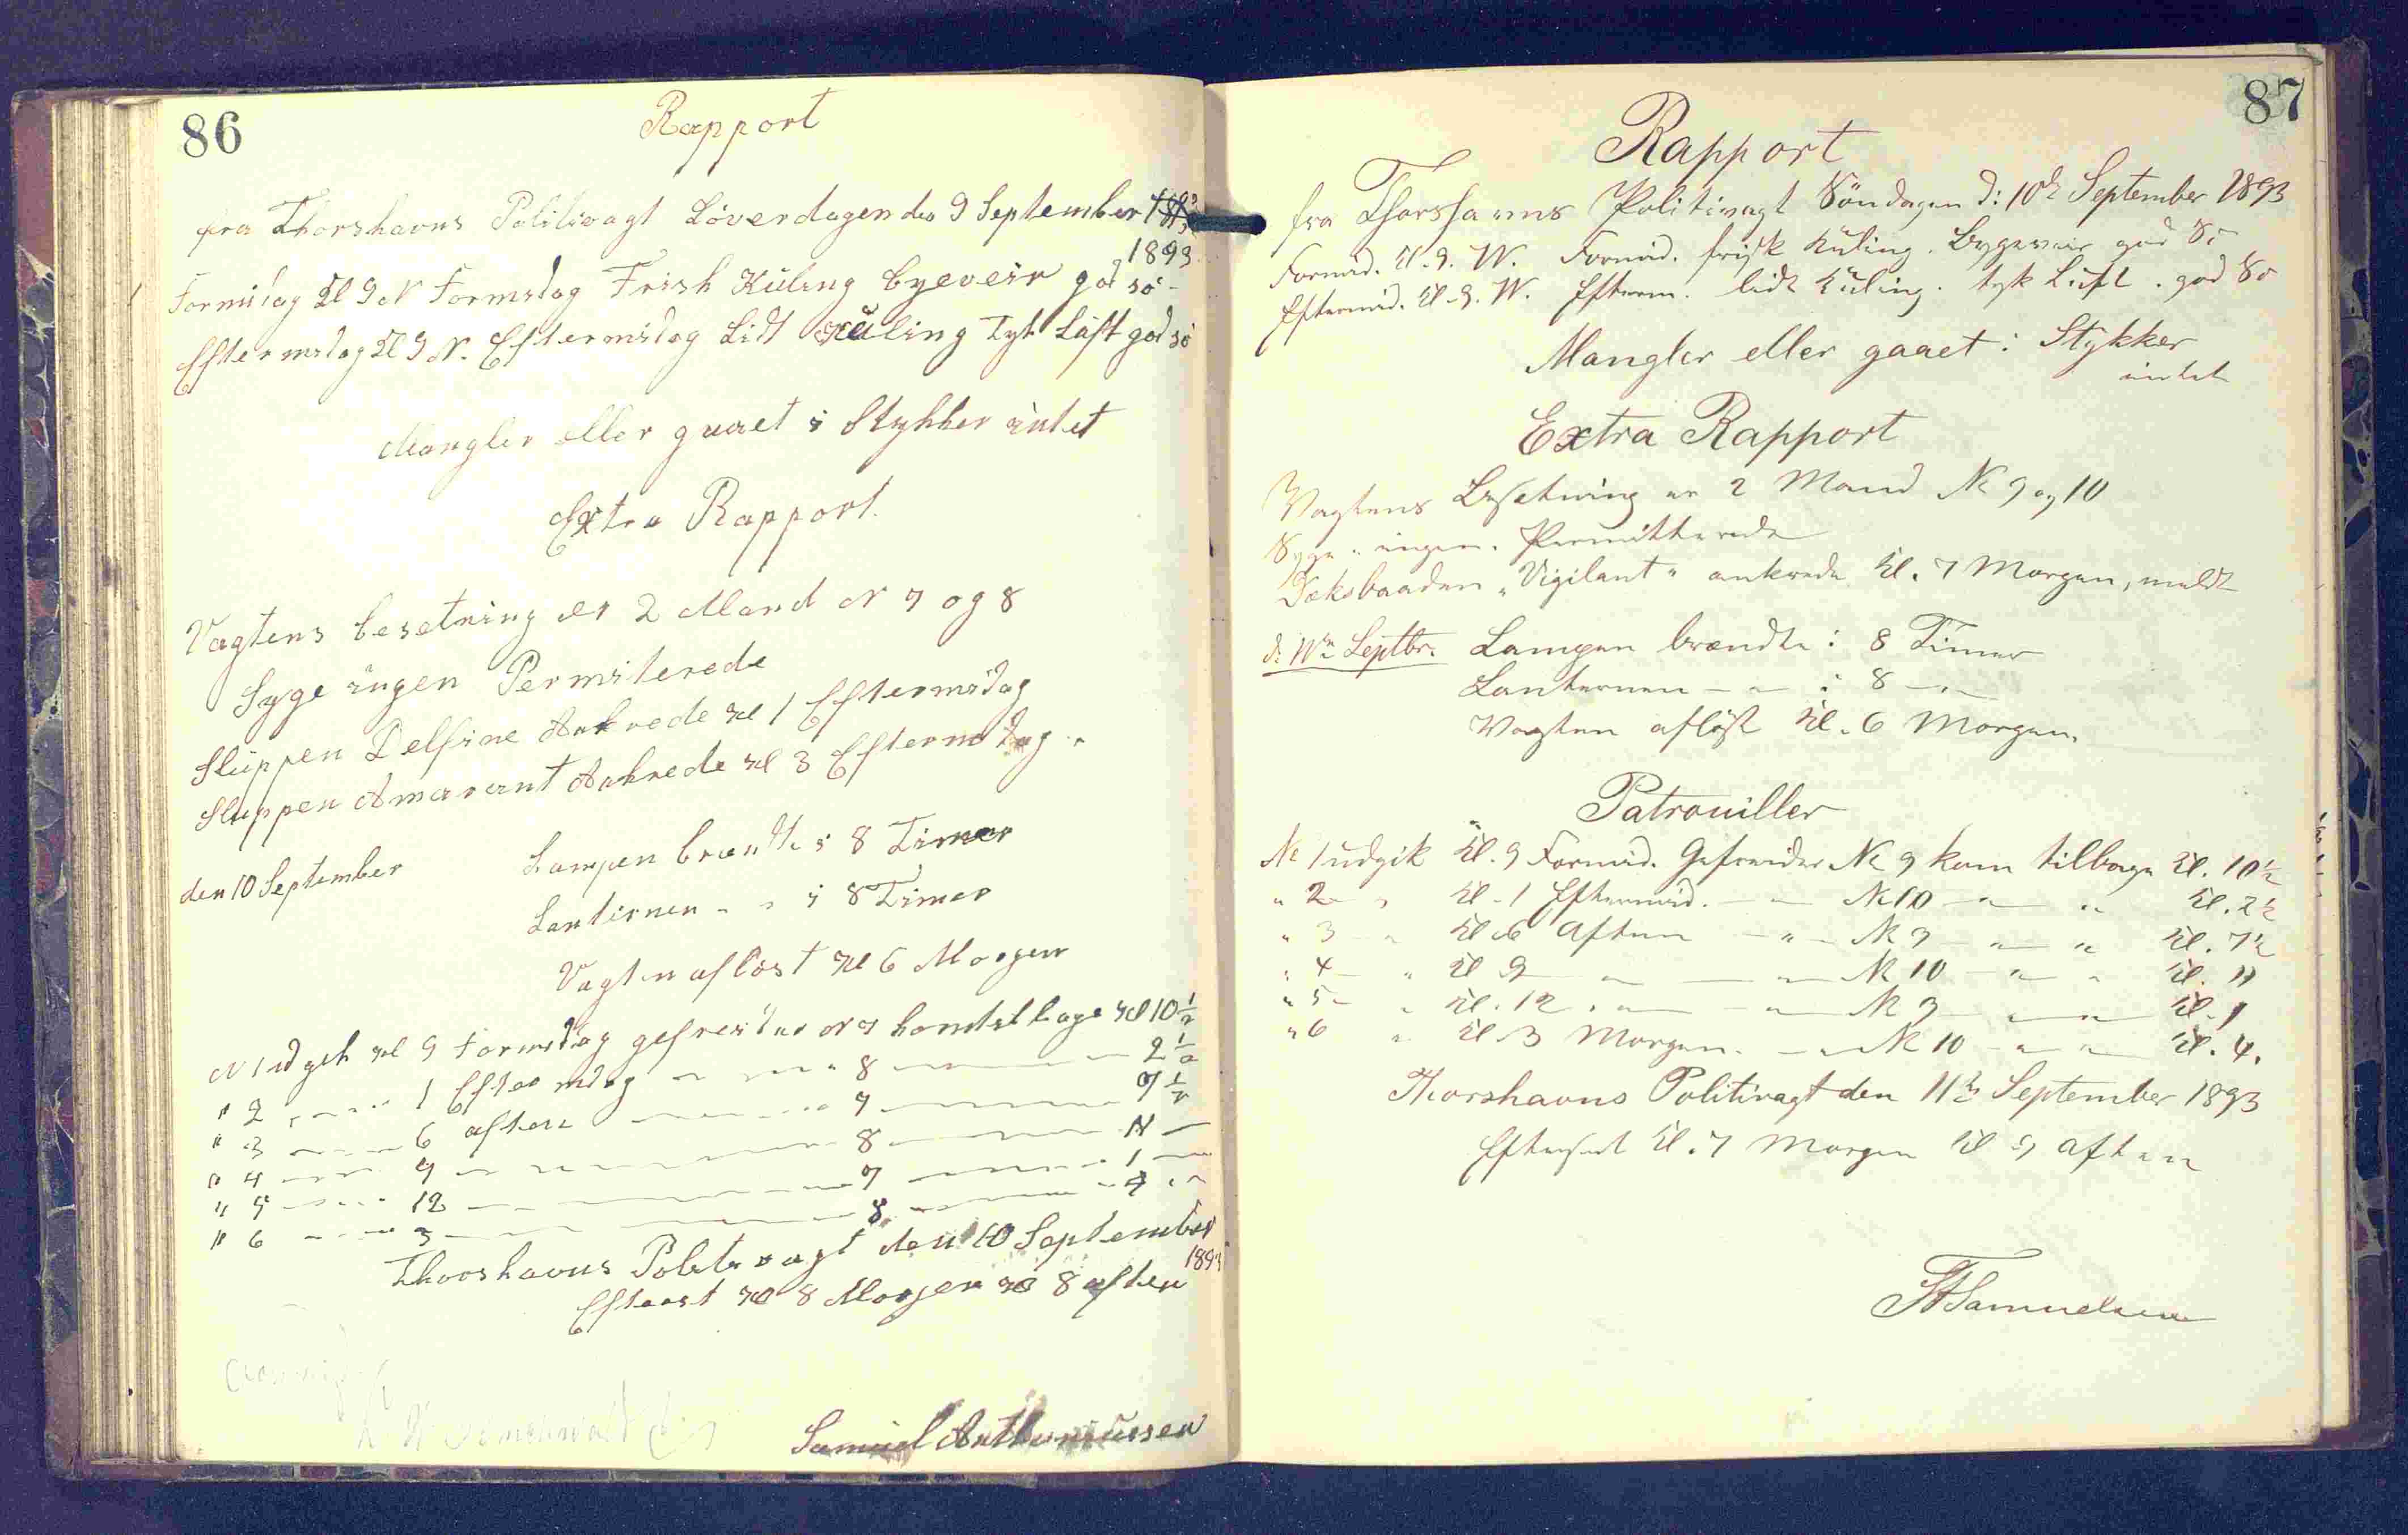 86
Rapport
fra Thorshavns Politivagt Löverdagen den 9 September
1893
Formidag Kl 9 N Formidag Frisk Küling byeveir god sö
Eftermidag Kl 9 N. Eftermidag Lidt Küling Tyk Luft god sö
Mangler eller gaaet i Stykker intet
Extra Rapport.
Vagtens besetning er 2 Mand N 7 og 8
Syge ingen Permiterede
Sluppen Delfine Ankrede Kl 1 Eftermidag
Sluppen Amarant Ankrede Kl 3 Eftermidag.
den 10 September Lampen brendte i 8 Timer
Lanternen - - i 8 Timer
Vagten aflöst Kl 6 Morgen
N 1 Kl 9 Formidag N 7 Kl 10 1/2
" 2 - - 1 Eftermidag - - " 8 - - 2 1/2
" 3 - - 6 aften - - 7 - - 7 1/2
" 4 - - 9 - - 8 - - 11 -
" 5 - - 12 - - 7 - - 1 -
" 6 - - 3 - - 8 - - 4 - -
Thorshavns Politivagt den 10 September
1893
Kl 8 Morgen Kl 8 aften
Samuel
87
Rapport
fra Thorshavns Politivagt Söndagen d: 10de September 1893
Formid. Kl. 9. W. Formid. frisk Küling. Bygeveir god Sö
Eftermid. Kl. 9. W. Efterm. lidt Küling. tyk Luft. god Sö
Mangler eller gaaet i Stykker
intet
Extra Rapport
Vagtens Besetning er 2 Mand No 9 og 10
Syge " ingen. Permitterede
Deksbaaden "Vigilant" ankrede Kl. 7 Morgen, meldt
d. 11te Septbr. Lampen brændte i 8 Timer
Lanternen - " - i 8 - " -
Vagten aflöst Kl. 6 Morgen.
Patrouiller
No 1 udgik Kl. 9 Formid. Gefreider No 9 kom tilbage Kl. 10 1/2
" 2 " Kl. 1 Eftermid. - " - No 10 - " - " Kl. 2 1/2
" 3 " Kl 6 Aften - " - No 9 - " - " Kl. 7 1/2
" 4 " Kl 9 - " - - " - No 10 - " - " Kl. 11
" 5 " Kl. 12 - " - - " - No 9 - " - " - Kl. 1
" 6 " Kl 3 Morgen. - " - No 10 - " - " - Kl. 4.
Thorshavns Politivagt den 11te September 1893
Kl. 7 Morgen Kl 9 Aften
Samuelsen